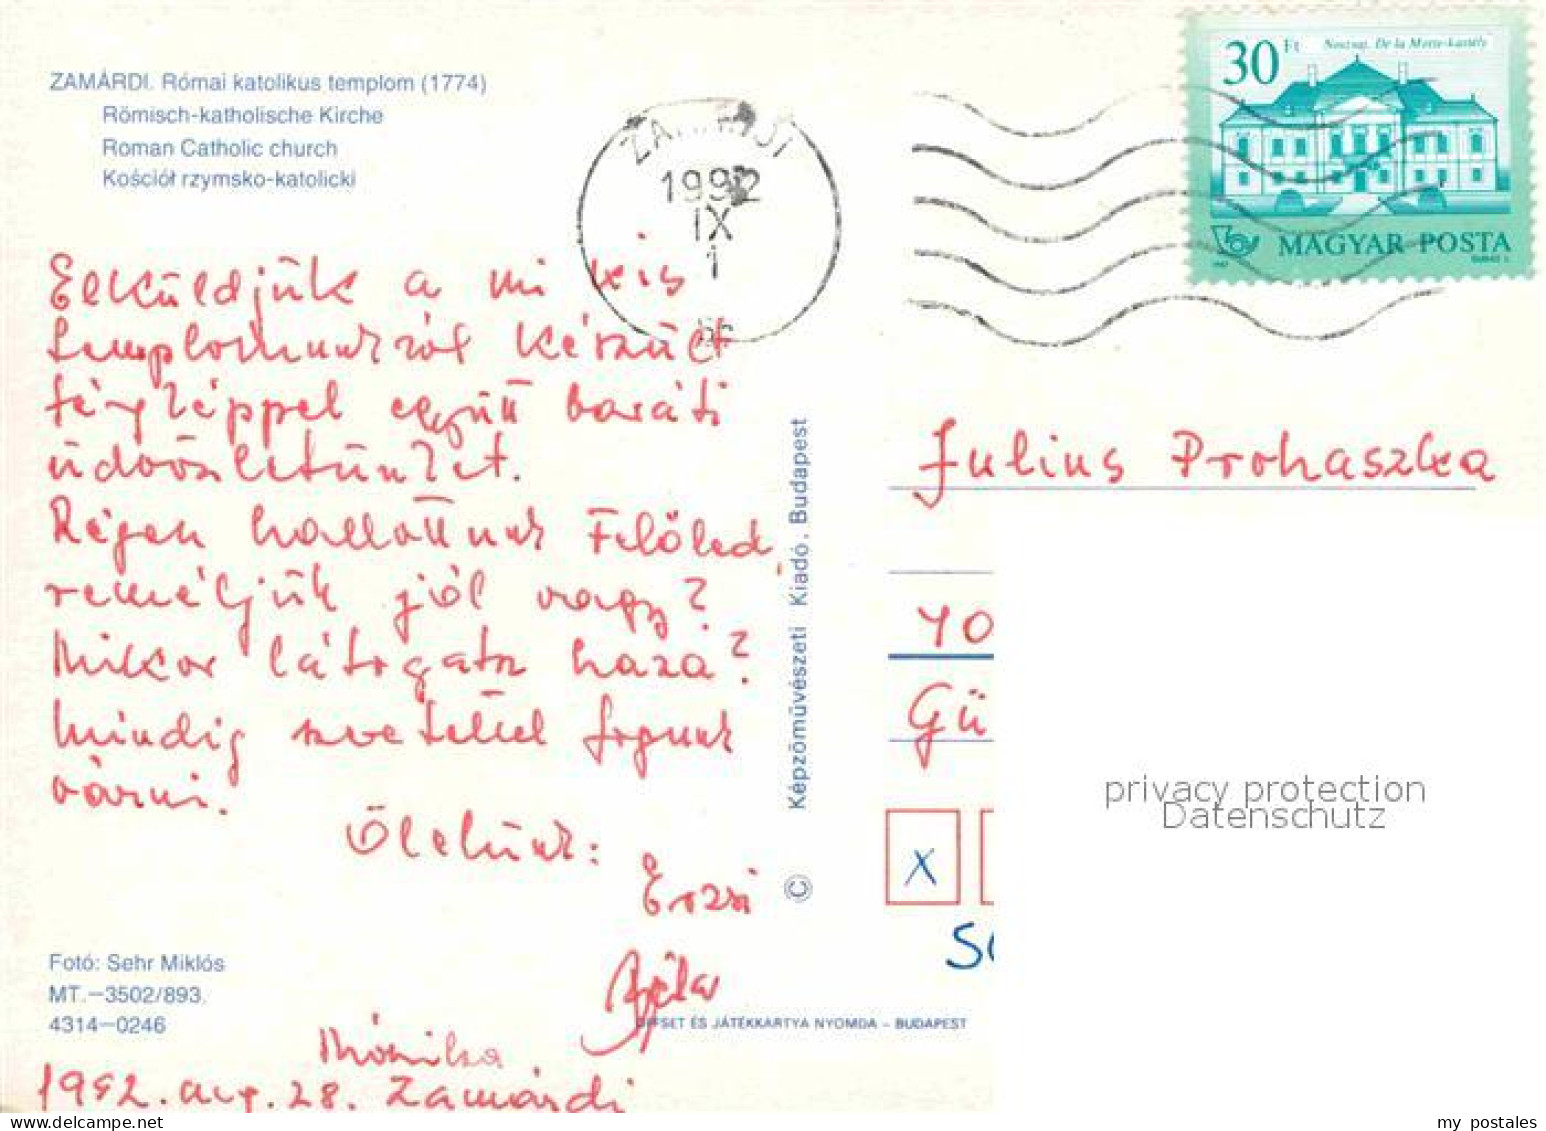 ZAMÁRDI. Római katolikus templom (1774)
Römisch-katholische Kirche
Roman Catholic church
Kościół rzymsko-katolicki
ZAMÁRDI
1992
IX
1
30 Ft
De la Motte-kastély
MAGYAR POSTA
Elküldjük a mi kis
templomunkról készült
fényképpel együtt baráti
üdvözletünket.
Régen hallottunk Felőled,
reméljük jól vagy?
Mikor látogatsz haza?
Mindig szeretettel fogunk
várni.
Ölelünk:
Erzsi
Béla
Mónika
1992. aug. 28. Zamárdi
Julius Prohaszka
40
Gü
X
Képzőművészeti Kiadó, Budapest
©
Fotó: Sehr Miklós
MT.–3502/893.
4314–0246
OFFSET ÉS JÁTÉKKARTYA NYOMDA – BUDAPEST
privacy protection
Datenschutz
www.delcampe.net
my_postales